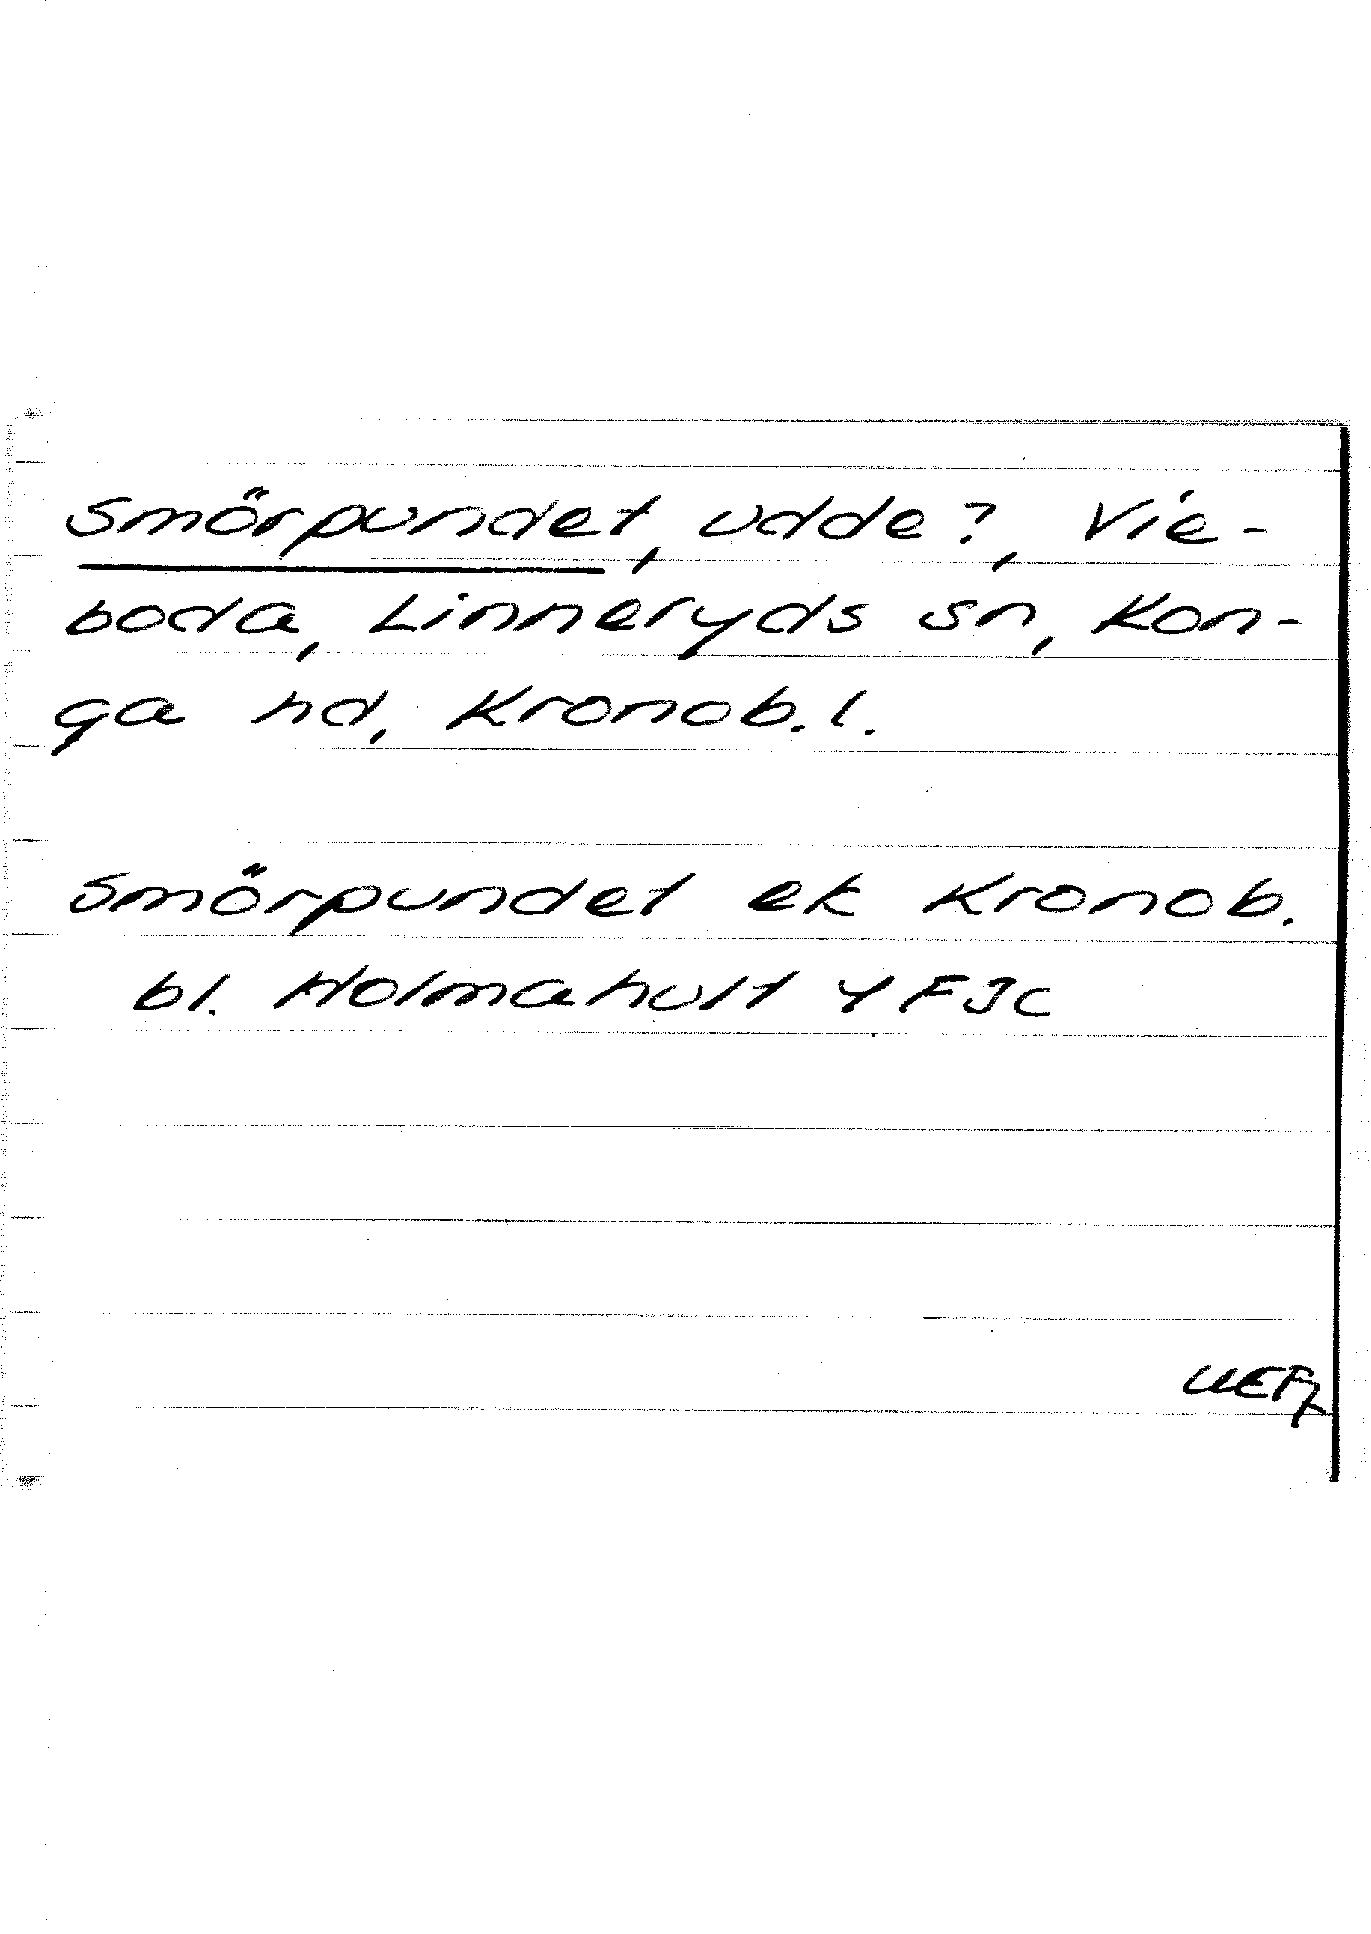 Smörpundet, udde?, Vie-
boda, Linneryds sn, Kon-
ga hd, Kronob. l.
Smörpundet ek Kronob.
bl. Holmahult 4FJc